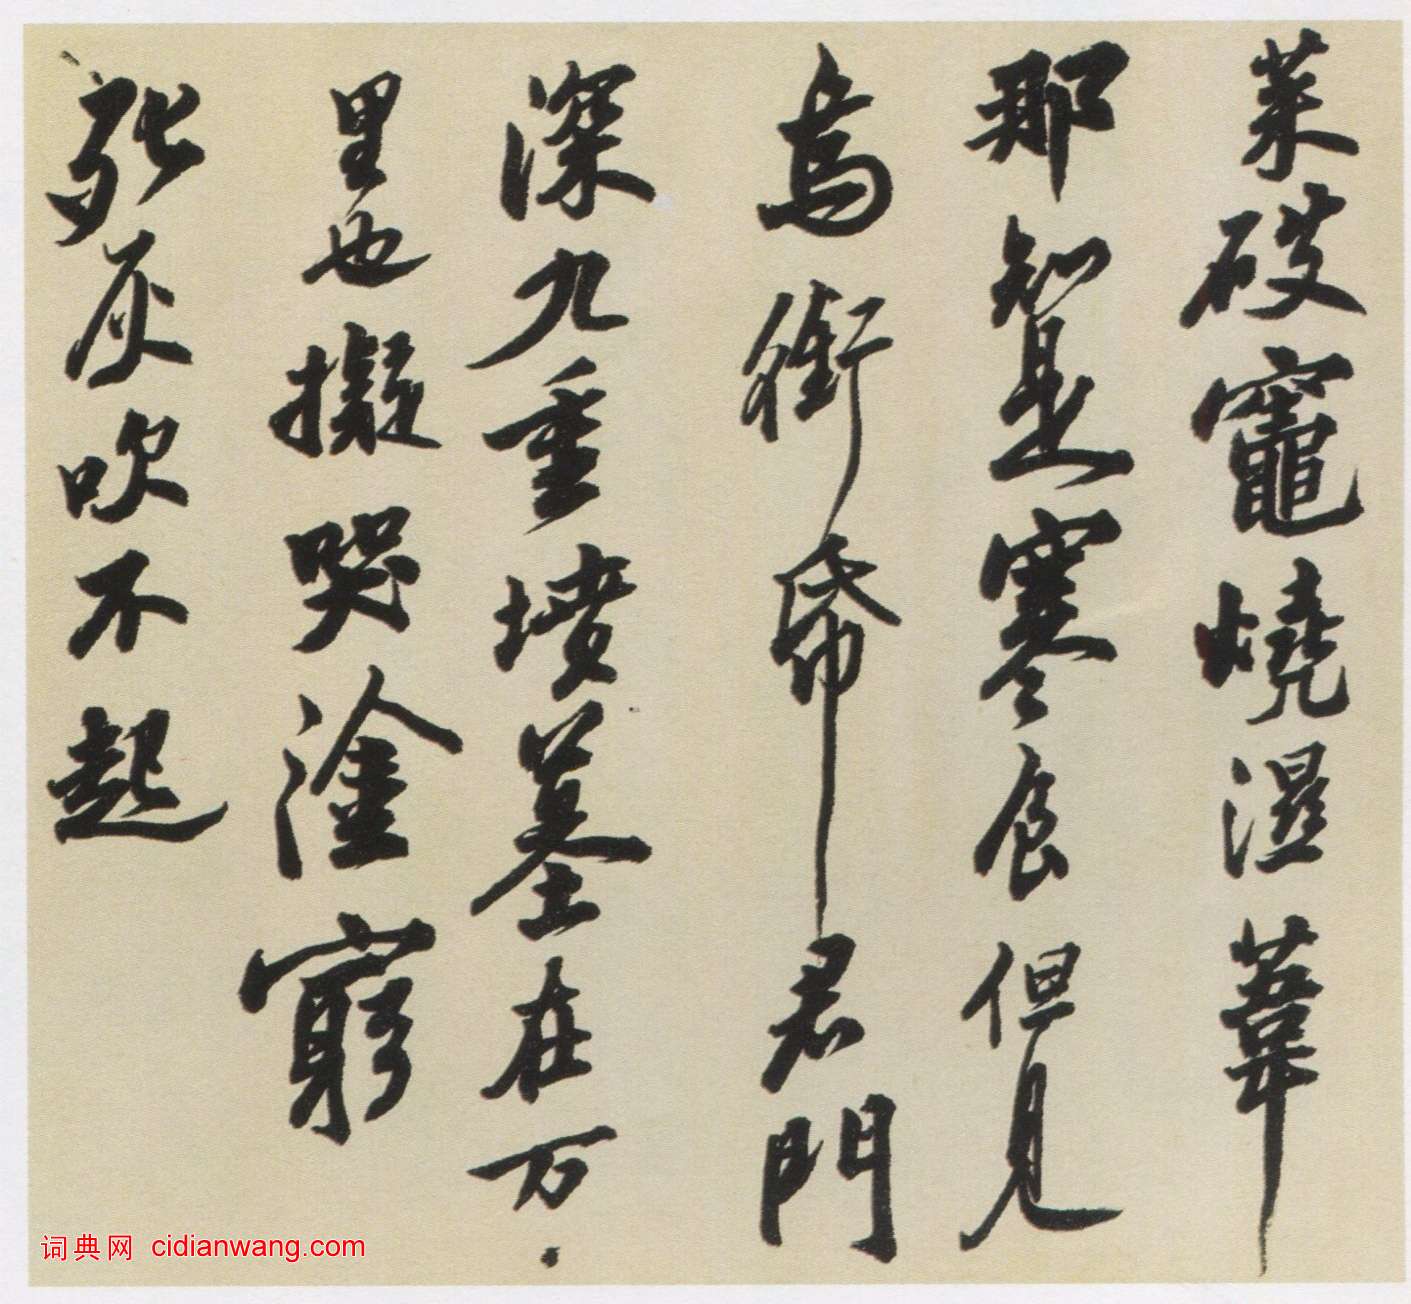 菜破竈燒濕葦
那知是寒食但見
烏銜帋君門
深九重墳墓在万
里也擬哭塗窮
死灰吹不起
词典网 cidianwang.com